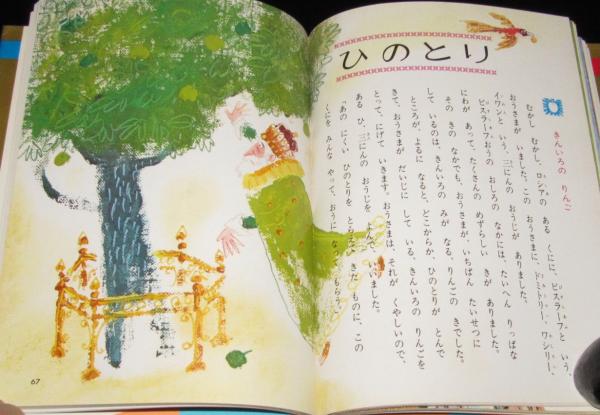 ひのとり
きんいろの りんご
むかし むかし、ロシアの ある くにに、ビスラーフと いう、
おうさまが いました。この おうさまに、ドミトリー、ワシリー、
イワンと いう、三にんの おうじが ありました。
ビスラーフおうの おしろの なかには、たいへん りっぱな
にわが あって、たくさんの めずらしい きが ありました。
その きの なかでも、おうさまが、いちばん たいせつに
して いるのは、きんいろの みが なる、りんごの きでした。
ところが、よるに なると、どこからか、ひのとりが とんで
きて、おうさまが だいじに して いる、きんいろの りんごを
とって、にげて いきます。おうさまは、それが くやしいので、
ある ひ、三にんの おうじを よんで、いいました。
「あの にくい ひのとりを とらえて きた ものに、この
くにを みんな やって、おうに なって もらう。
67